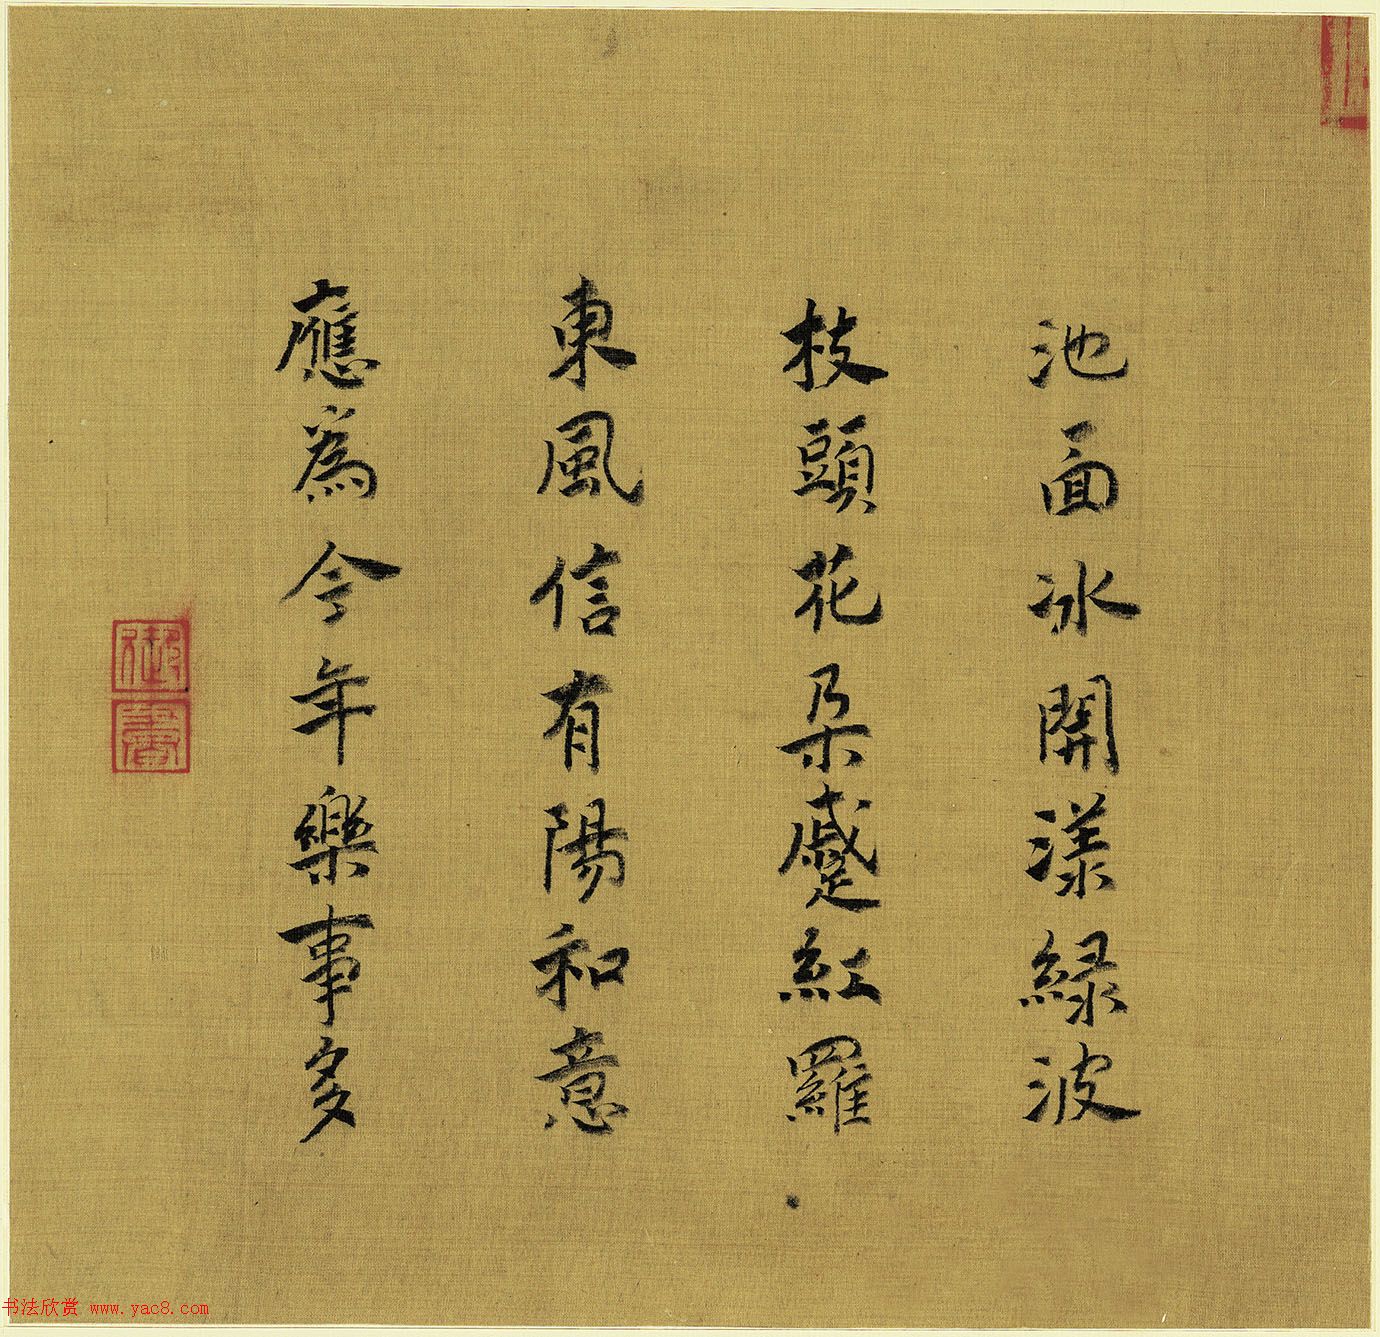 池面冰開漾緑波
枝頭花朵蹙紅羅
東風信有陽和意
應為今年樂事多
御書
书法欣赏 www.yac8.com